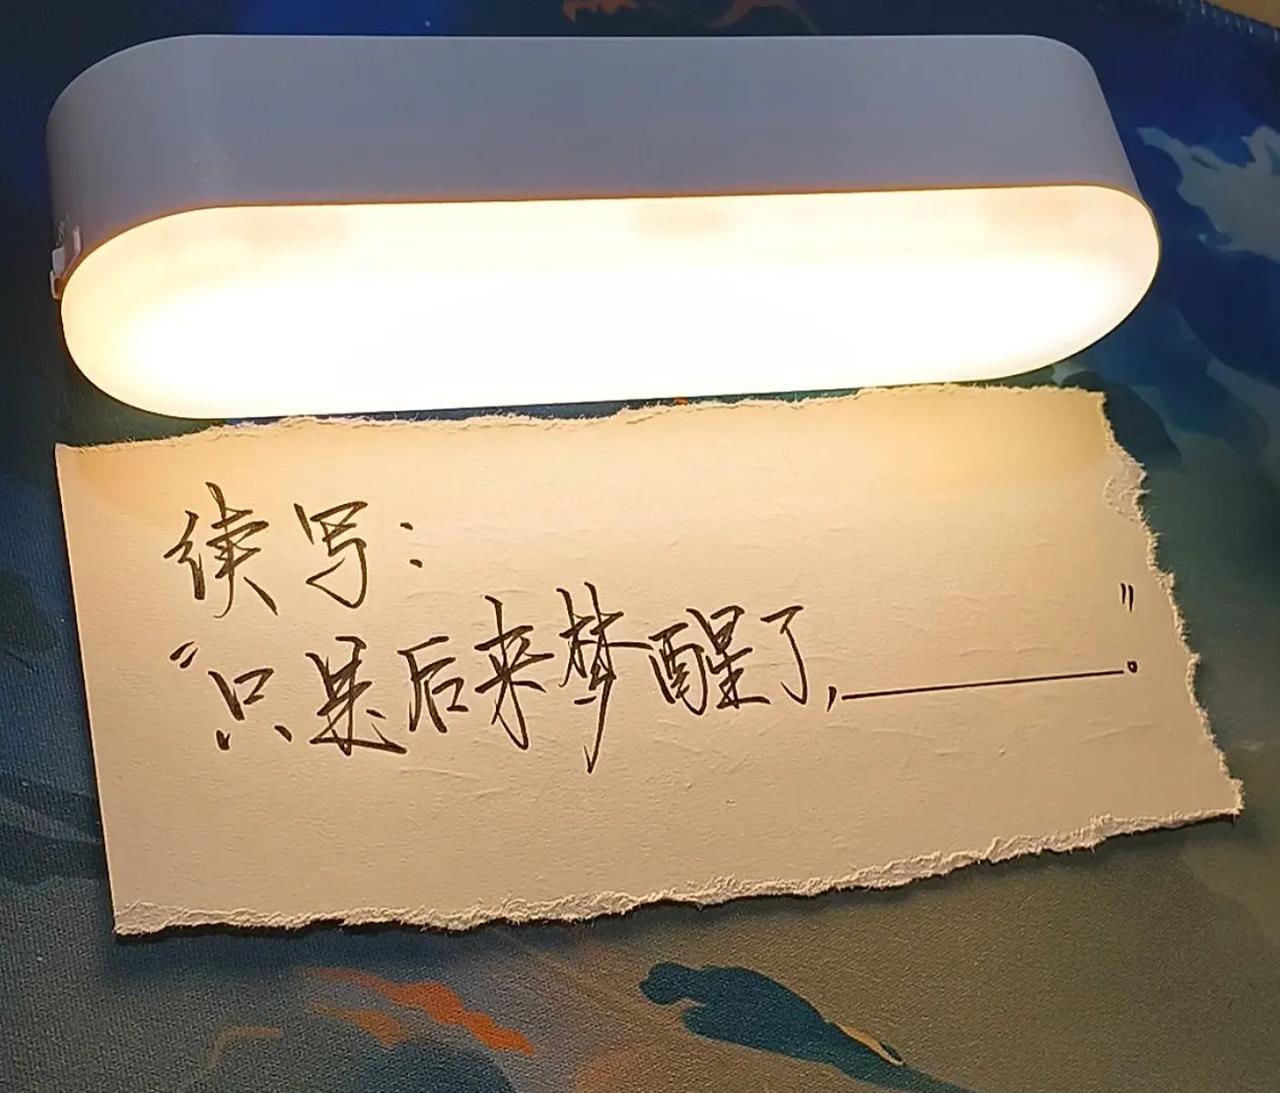 续写：
“只是后来梦醒了，________。”